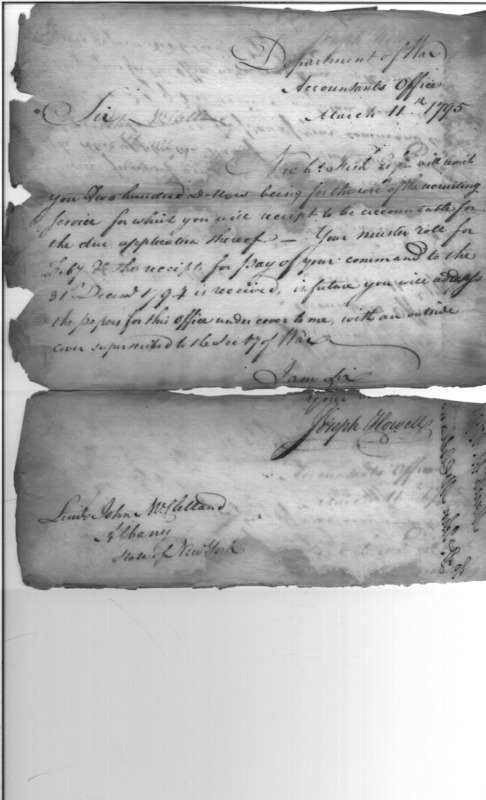 Department of War
Accountants Office
March 11th 1795
Sir
Esqr will remit
you Two hundred Dollars being for the use of the recruiting
service for which you will receipt to be accountable for
the due application thereof — Your muster roll for
Feby & the receipts for Pay of your command to the
31t Decemr 1794 is received, in future you will address
the papers for this Office under cover to me, with an outside
cover superscribed to the Secty of War
I am Sir
Yours
Joseph Howell
Lieut John McClelland
Albany
State of New York